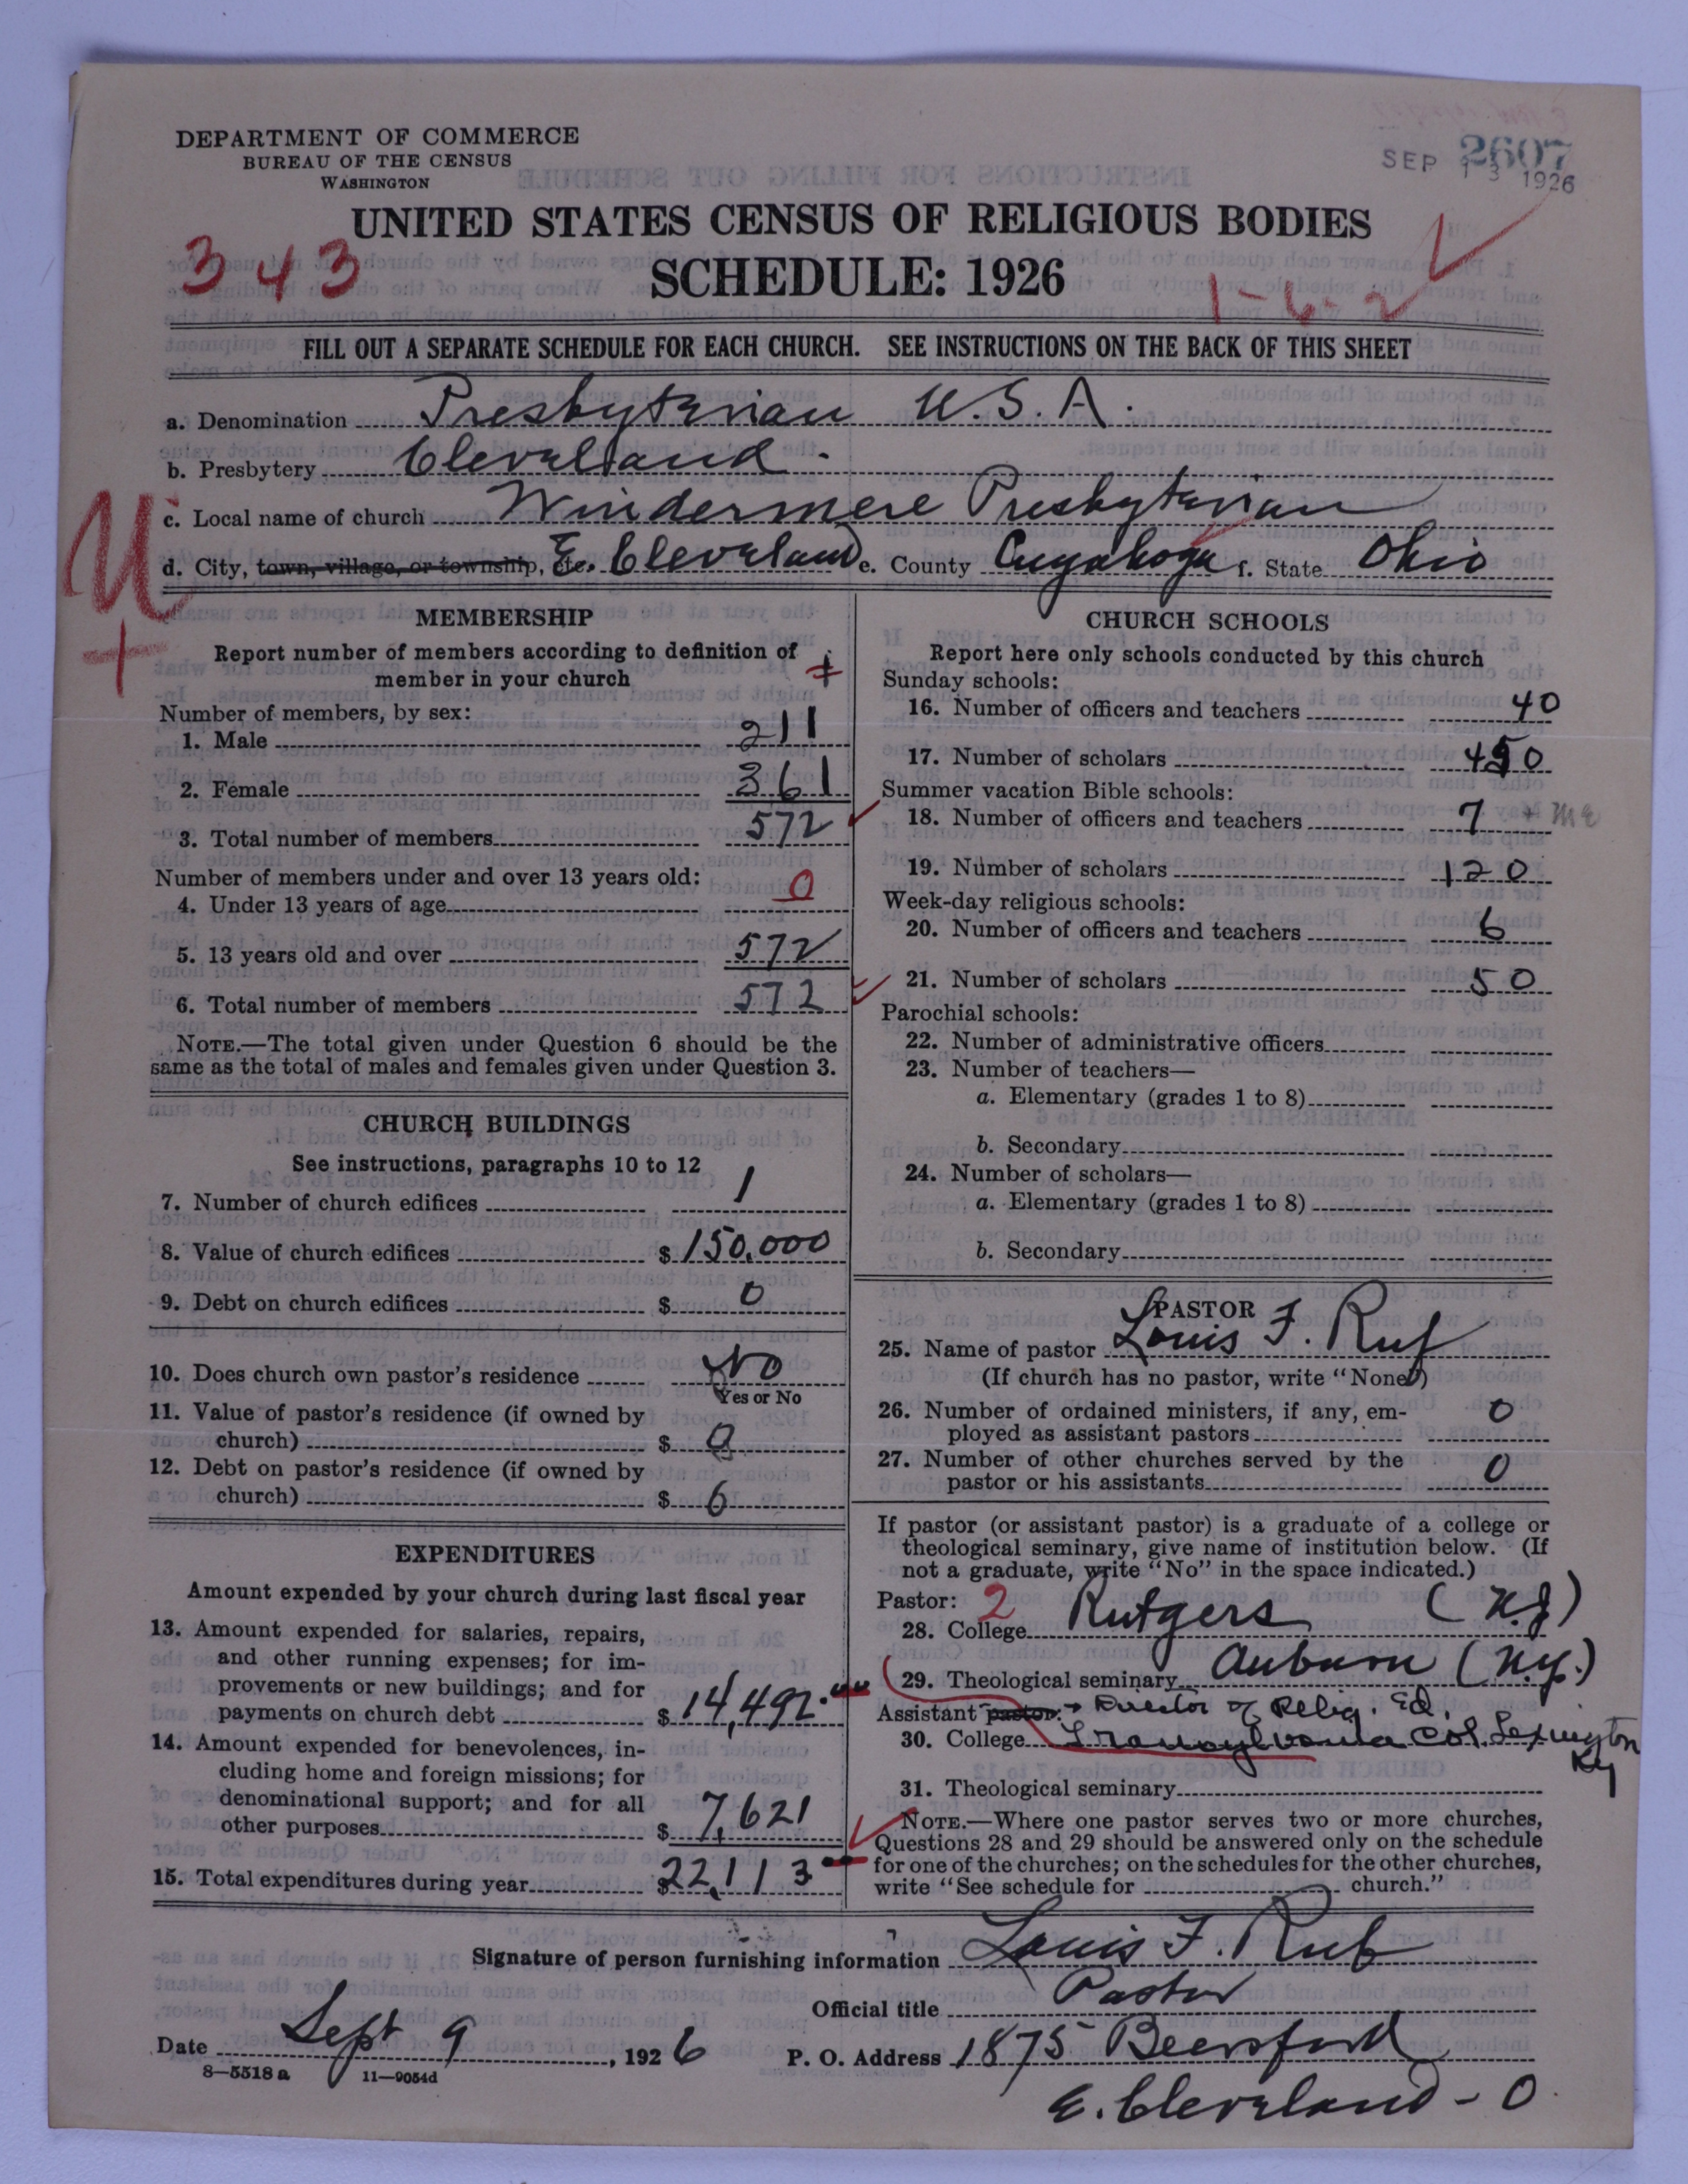 DEPARTMENT OF COMMERCE
BUREAU OF THE CENSUS
WASHINGTON
2607
SEP 13 1926
UNITED STATES CENSUS OF RELIGIOUS BODIES
343
SCHEDULE: 1926
1-6-2
FILL OUT A SEPARATE SCHEDULE FOR EACH CHURCH. SEE INSTRUCTIONS ON THE BACK OF THIS SHEET
a. Denomination Presbyterian U.S.A.
b. Presbytery Cleveland.
c. Local name of church Windermere Presbyterian
d. City, town, village, or township, etc. E. Cleveland e. County Cuyahoga f. State Ohio
U
+
MEMBERSHIP
Report number of members according to definition of
member in your church
Number of members, by sex:
1. Male 211
2. Female 361
3. Total number of members 572
Number of members under and over 13 years old:
4. Under 13 years of age 0
5. 13 years old and over 572
6. Total number of members 572
NOTE.—The total given under Question 6 should be the
same as the total of males and females given under Question 3.
CHURCH BUILDINGS
See instructions, paragraphs 10 to 12
7. Number of church edifices 1
8. Value of church edifices $ 150,000
9. Debt on church edifices $ 0
10. Does church own pastor's residence No
Yes or No
11. Value of pastor's residence (if owned by
church) $ 0
12. Debt on pastor's residence (if owned by
church) $ 0
EXPENDITURES
Amount expended by your church during last fiscal year
13. Amount expended for salaries, repairs,
and other running expenses; for im-
provements or new buildings; and for
payments on church debt $ 14,492
14. Amount expended for benevolences, in-
cluding home and foreign missions; for
denominational support; and for all
other purposes $ 7,621
15. Total expenditures during year $ 22,113
CHURCH SCHOOLS
Report here only schools conducted by this church
Sunday schools:
16. Number of officers and teachers 40
17. Number of scholars 450
Summer vacation Bible schools:
18. Number of officers and teachers 7
19. Number of scholars 120
Week-day religious schools:
20. Number of officers and teachers 6
21. Number of scholars 50
Parochial schools:
22. Number of administrative officers
23. Number of teachers—
a. Elementary (grades 1 to 8)
b. Secondary
24. Number of scholars—
a. Elementary (grades 1 to 8)
b. Secondary
PASTOR
25. Name of pastor Louis F. Ruf
(If church has no pastor, write "None")
26. Number of ordained ministers, if any, em-
ployed as assistant pastors 0
27. Number of other churches served by the
pastor or his assistants 0
If pastor (or assistant pastor) is a graduate of a college or
theological seminary, give name of institution below. (If
not a graduate, write "No" in the space indicated.)
Pastor: 2
28. College Rutgers (N.J)
29. Theological seminary Auburn (N.Y.)
Assistant pastor: Director of Relig. Ed.
30. College Transylvania Col. Lexington
Ky
31. Theological seminary
NOTE.—Where one pastor serves two or more churches,
Questions 28 and 29 should be answered only on the schedule
for one of the churches; on the schedules for the other churches,
write "See schedule for church."
Signature of person furnishing information Louis F. Ruf
Official title Pastor
Date Sept 9, 1926 P. O. Address 1875 Beersford
8—5518a 11—9054d
E. Cleveland - O.